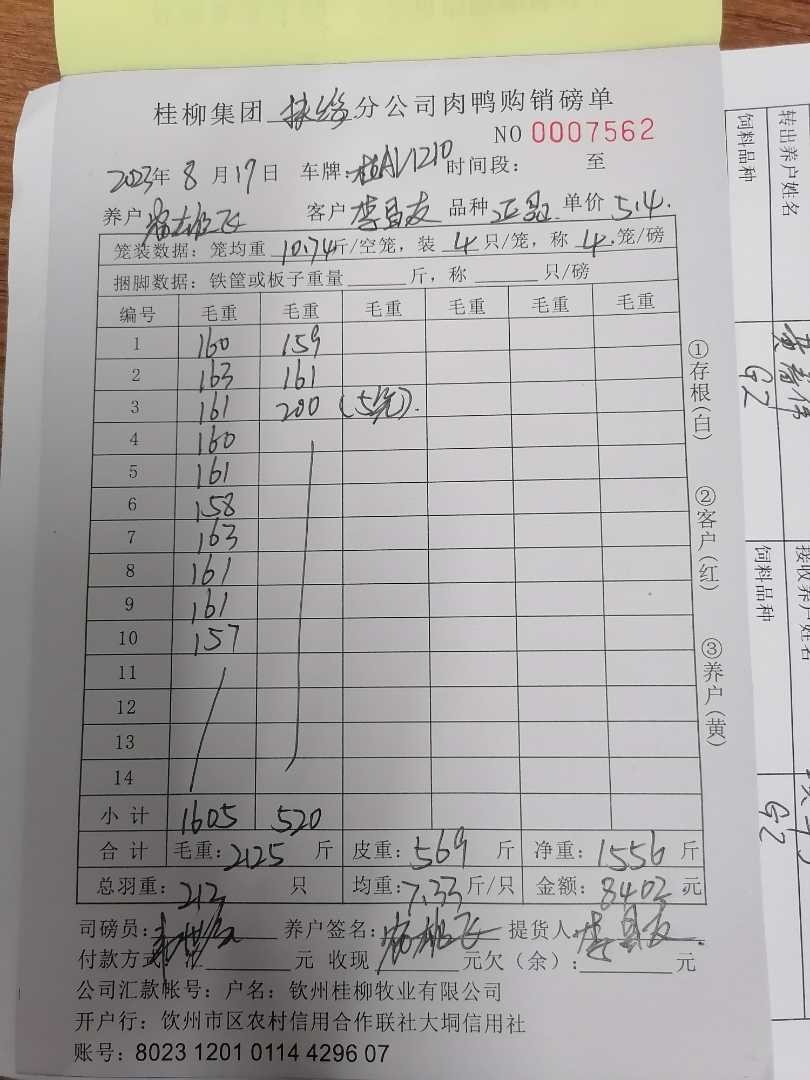 桂柳集团 扶绥 分公司肉鸭购销磅单
NO 0007562
2023年 8 月 17 日 车牌：桂AV1210 时间段： 至
养户 客户 李昌友 品种 单价 5.4.
笼装数据：笼均重 10.74 斤/空笼，装 4 只/笼，称 4. 笼/磅
捆脚数据：铁筐或板子重量 斤，称 只/磅
编号 毛重 毛重 毛重 毛重 毛重 毛重
1 160 159
2 163 161
3 161 200 (5笼).
4 160
5 161
6 158
7 163
8 161
9 161
10 157
11
12
13
14
小 计 1605 520
合 计 毛重：2125 斤 皮重：569 斤 净重：1556 斤
总羽重：212 只 均重：7.33 斤/只 金额：8402 元
司磅员： 养户签名： 提货人：李昌友
付款方式 汇 元 收现 元 欠（余）： 元
公司汇款帐号：户名：钦州桂柳牧业有限公司
开户行：饮州市区农村信用合作联社大垌信用社
账号：8023 1201 0114 4296 07
①存根(白)
②客户(红)
③养户(黄)
转出养户姓名
饲料品种
G2
接收养户姓名
饲料品种
G2